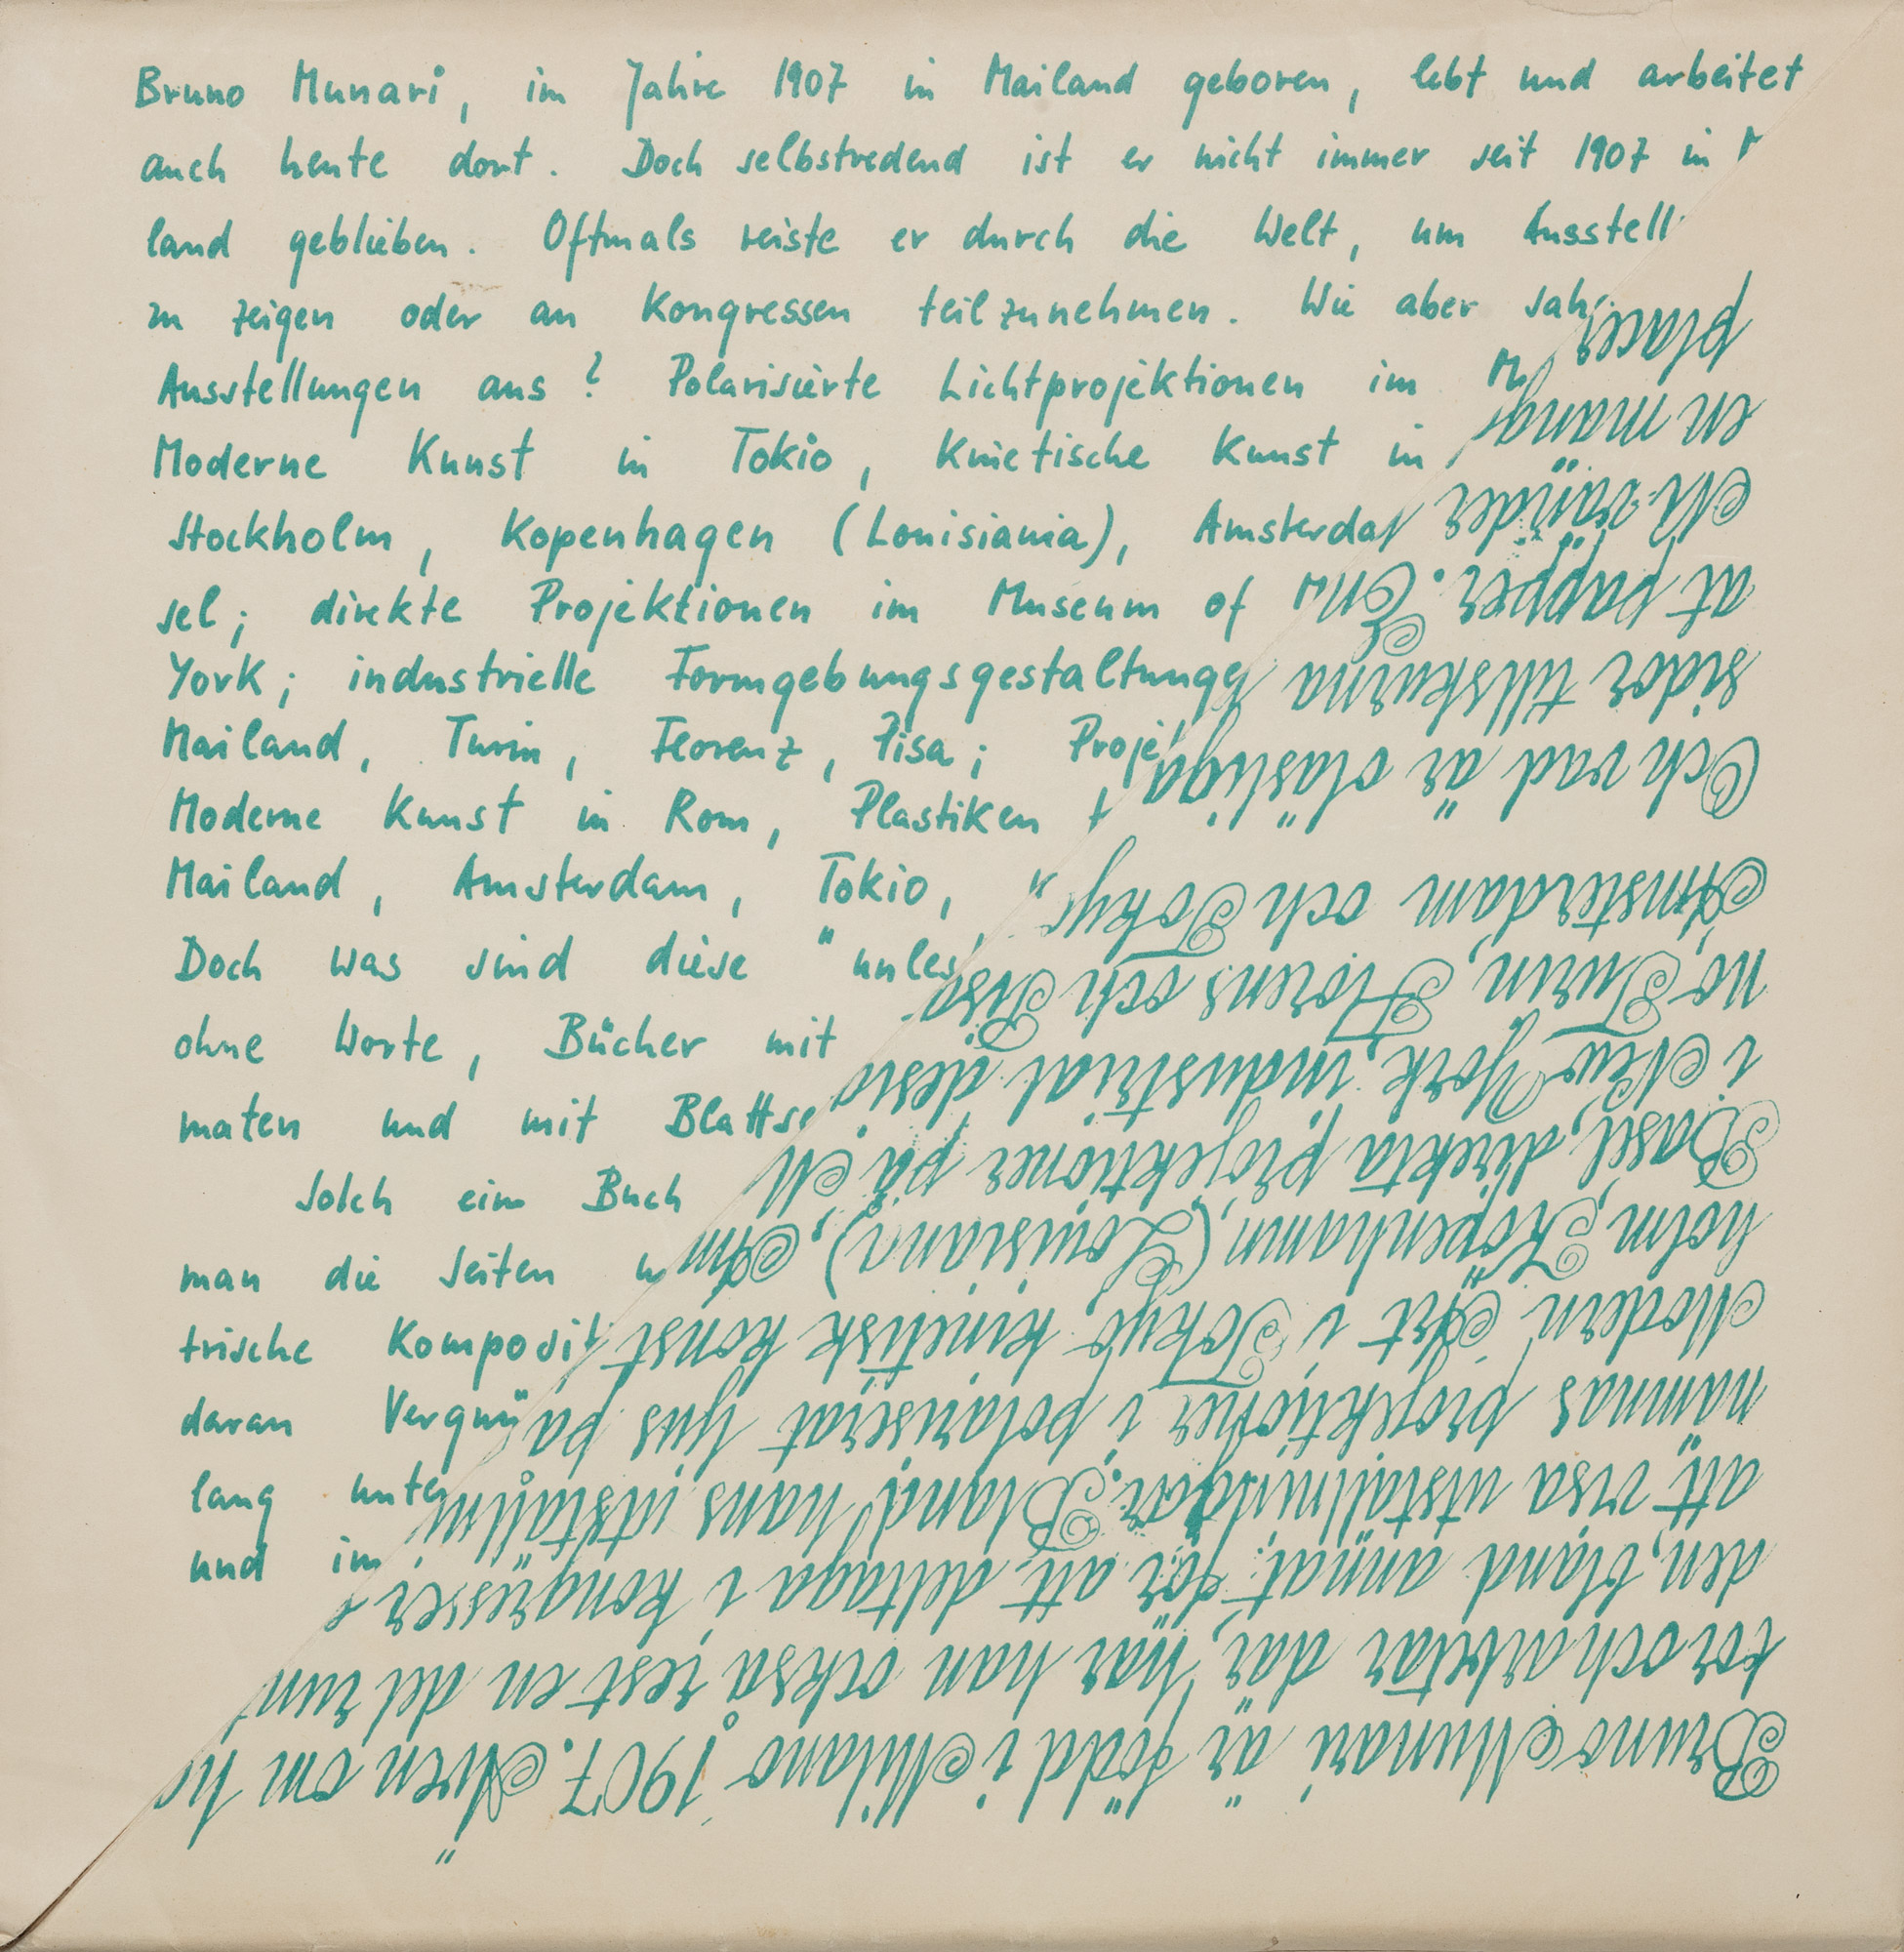 Bruno Munari, im Jahre 1907 in Mailand geboren, lebt und arbeitet
auch heute dort. Doch selbstredend ist er nicht immer seit 1907 in M
land geblieben. Oftmals reiste er durch die Welt, um Ausstell
zu zeigen oder an Kongressen teilzunehmen. Wie aber sah
Ausstellungen aus? Polarisierte Lichtprojektionen im Mu
Moderne Kunst in Tokio, Kinetische Kunst in
Stockholm, Kopenhagen (Louisiania), Amsterda
sel; direkte Projektionen im Museum of M
York; industrielle Formgebungsgestaltunge
Mailand, Turin, Florenz, Pisa; Proje
Moderne Kunst in Rom, Plastiken
Mailand, Amsterdam, Tokio,
Doch was sind diese "unles
ohne Worte, Bücher mit
maten und mit Blattse
Solch ein Buch
man die Seiten w
trische Komposit
daran Vergnü
lang unter
und im
Bruno Munari är född i Milano 1907. Även om h
bor och arbetar där, har han också rest en del run
den, bland annat för att deltaga i kongresser
att visa utställningar. Bland hans utställni
nämnas projektioner i polariserat ljus på
Modern Art i Tokyo, kinetisk konst
holm, Köpenhamn, (Louisiana), Am
Basel, direkta projektioner på M
i New York, industrial desig
no, Turin, Florens och Pisa
Amsterdam och Tokyo
Och vad är oläsliga
sidor tillskurna
at papper. En
N. vänder
en mängd
placer